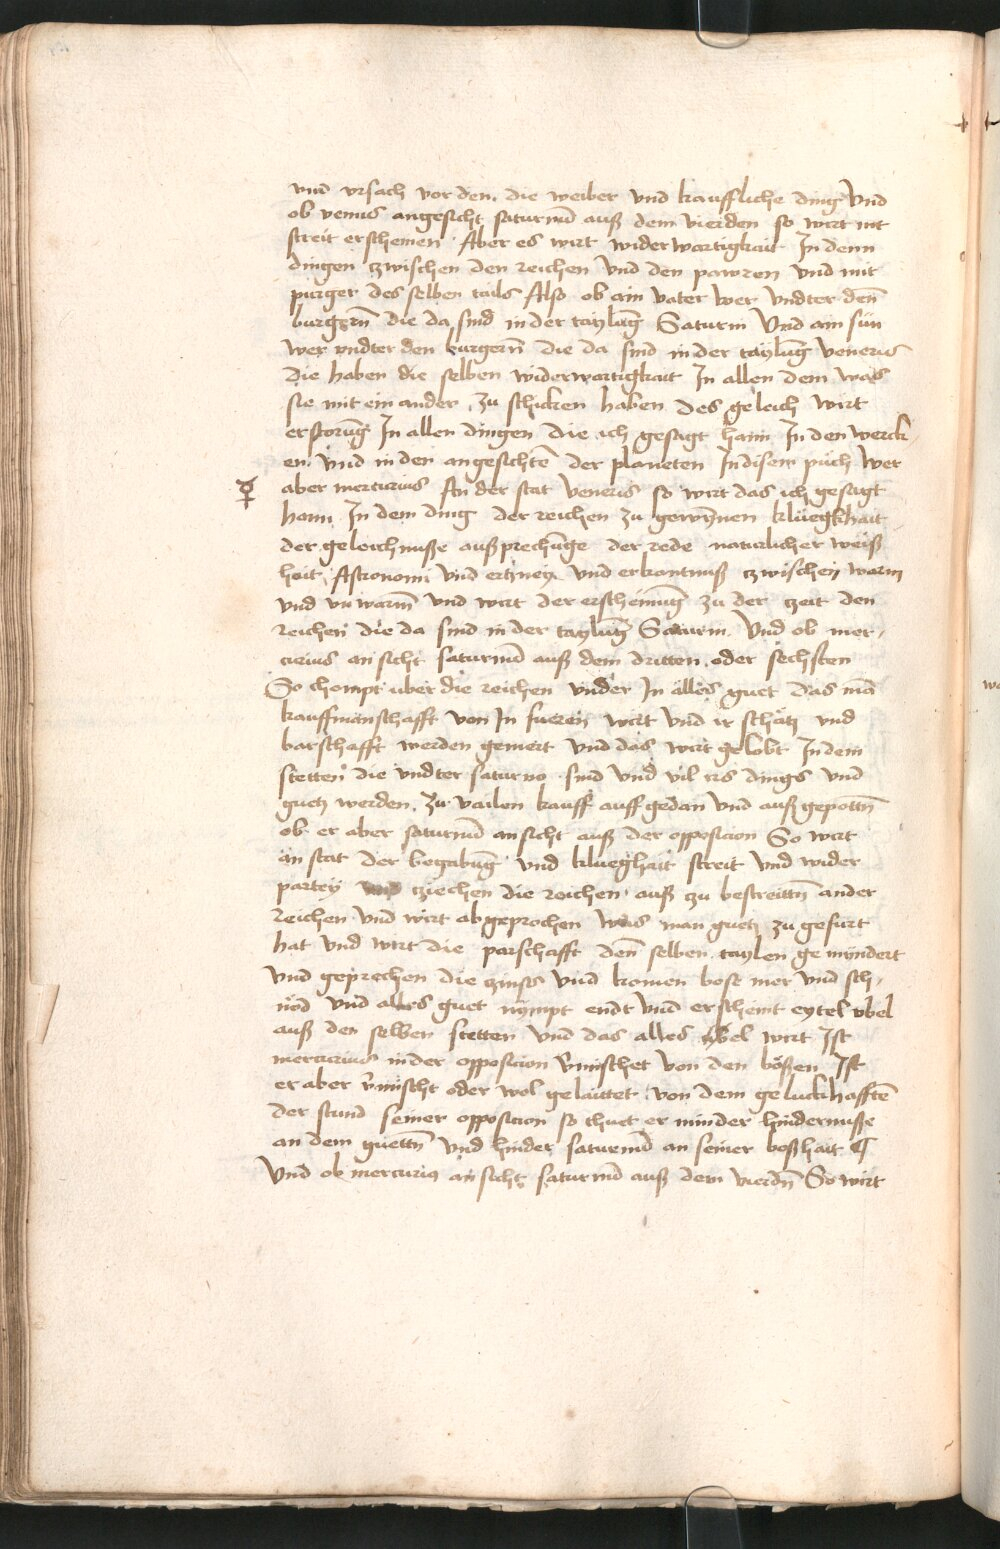 vnd vrsach vor den. die weiber vnd kauffliche ding Vnd
ob venus angesicht saturnũ auß dem vierden so wirt nit
streit erscheinen Aber es wirt widerwartigkait In denn
dingen zwischen den reichen Vnd den pawren vnd mit
purger des selben tails Also ob ain vater wer Vndter den̄
burgern̄ die da sind in der taylūg Saturni Vnd ain sun
wer vndter den burgern̄ die da sind in der taylūg veneris
die haben die selben widerwartigkait In allen dem was
sie mit ein ander zu schicken haben Des geleich wirt
erstorūg In allen dingen die ich gesagt hann In den werck,
en vnd in den angesichtē der planeten In disem puch Wer
☿ aber mercurius An der stat Veneris so wirt das ich gesagt
hann In dem ding der reichen zu gewȳnnen kluegkhait
der geleichnusse außprechūge der rede naturlicher weiß
hait Astronomi Vnd ertzney vnd erkantnuß zwischen warm
vnd vnwarm̄ Vnd wirt der erscheinūg zu der zeit den
reichen die da sind in der taylūg Saturni Vnd ob mer,
curius an sicht saturnũ auß dem dritten oder sechsten
So chompt uber die reichen vnder In alles guet das mā
kauffmanschafft von In fueren wirt Vnd ir schätz vnd
barschafft werden gemert Vnd das wirt gelobt In dem
stetten die vndter saturno sind Vnd vil irs dings vnd
guetz werden zu vailen kauff auff gedan Vnd außgepottn̄
ob er aber saturnũ an sicht auß der opposicion So wirt
an stat der begabūg vnd klueghait streit vnd wider
partey ziechen die reichen auß zu bestreittn̄ ander
reichen Vnd wirt abgeprochen was man guetz zu gefurt
hat vnd wirt die parschafft den̄ selben taylen gemyndert
vnd geprechen die zinss vnd komen bose mer vnd sch,
nöd vnd alles guet nympt endt Vnd erscheint eytel vbel
auß den selben stetten Vnd das alles vbel wirt Ist
mercurius in der opposicion v̄mischet von den bößen Ist
er aber v̄mischt oder wol gelaittet von dem geluckhafftē
der stund seiner opposicion so thuet er minder hindernusse
an dem guettn̄ Vnd hinder saturnũ an seiner boßhait ¶
Vnd ob mercurig an sicht saturnũ auß dem vierdn̄ So wirt